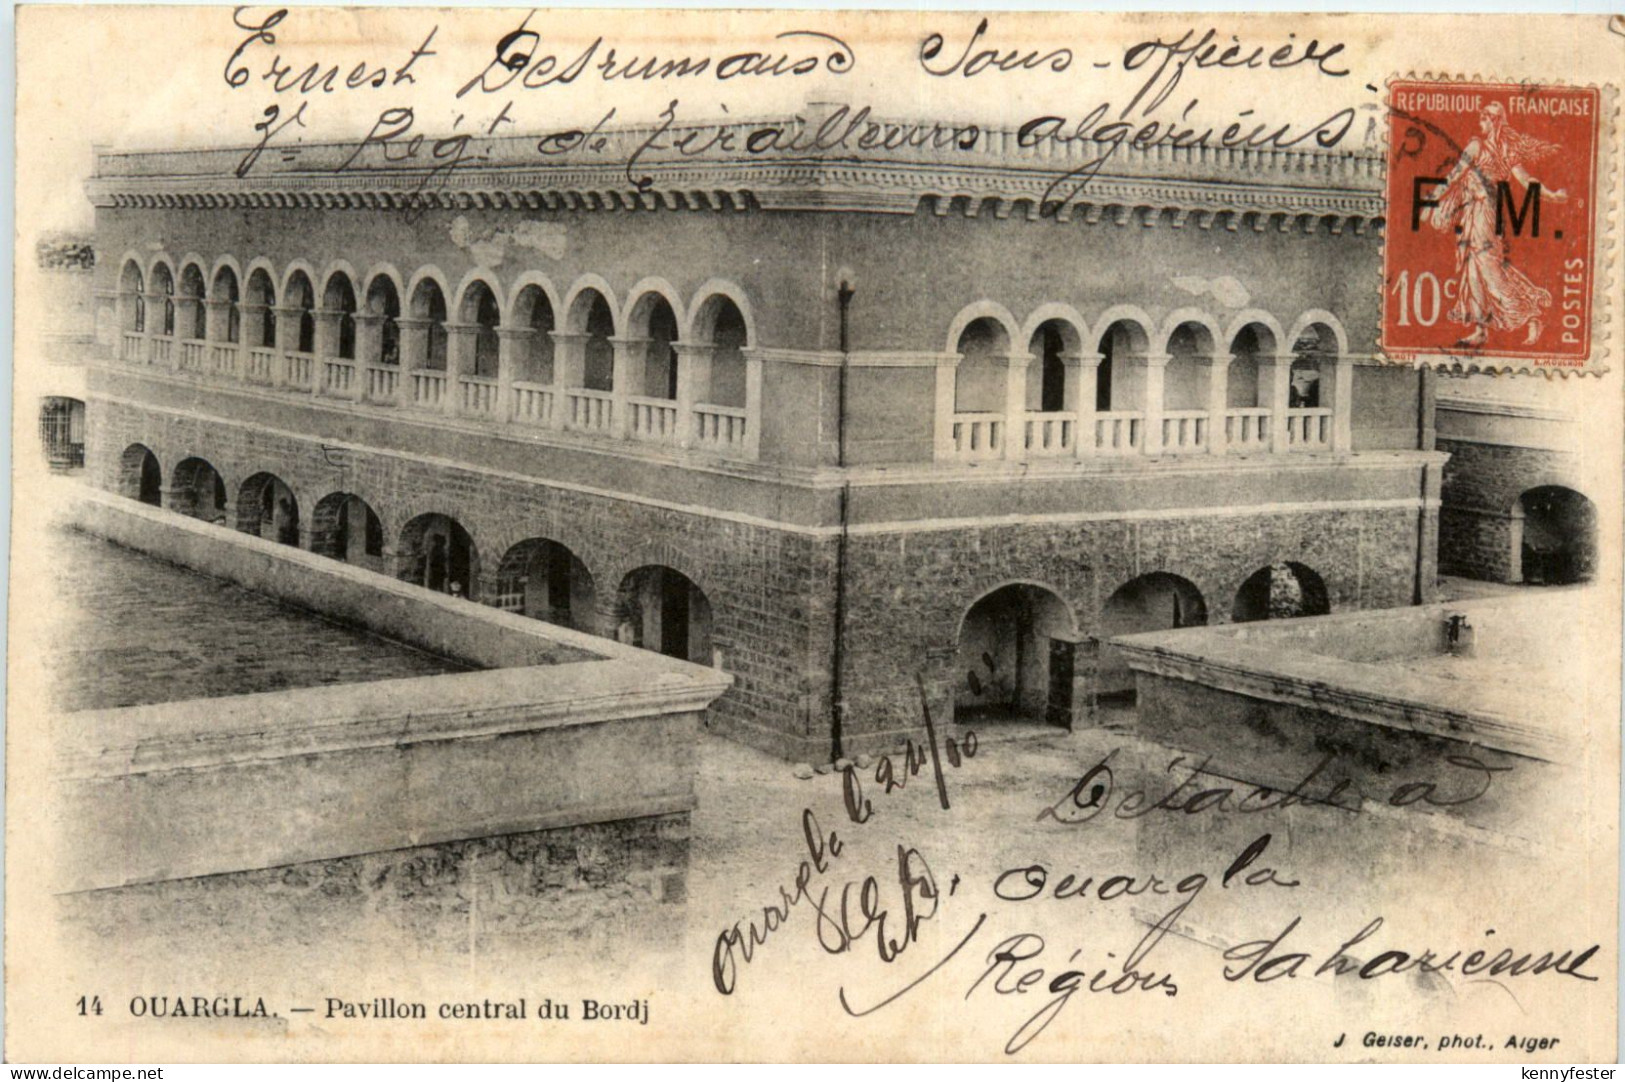 Ernest Destrumaux Sous-officier
3e Régt de Tirailleurs algériens
RÉPUBLIQUE FRANÇAISE
F. M.
10c
POSTES
Ouargla le
ED.
Détaché à
Ouargla
Région Saharienne
14 OUARGLA. — Pavillon central du Bordj
J Geiser, phot., Alger
kennyfester